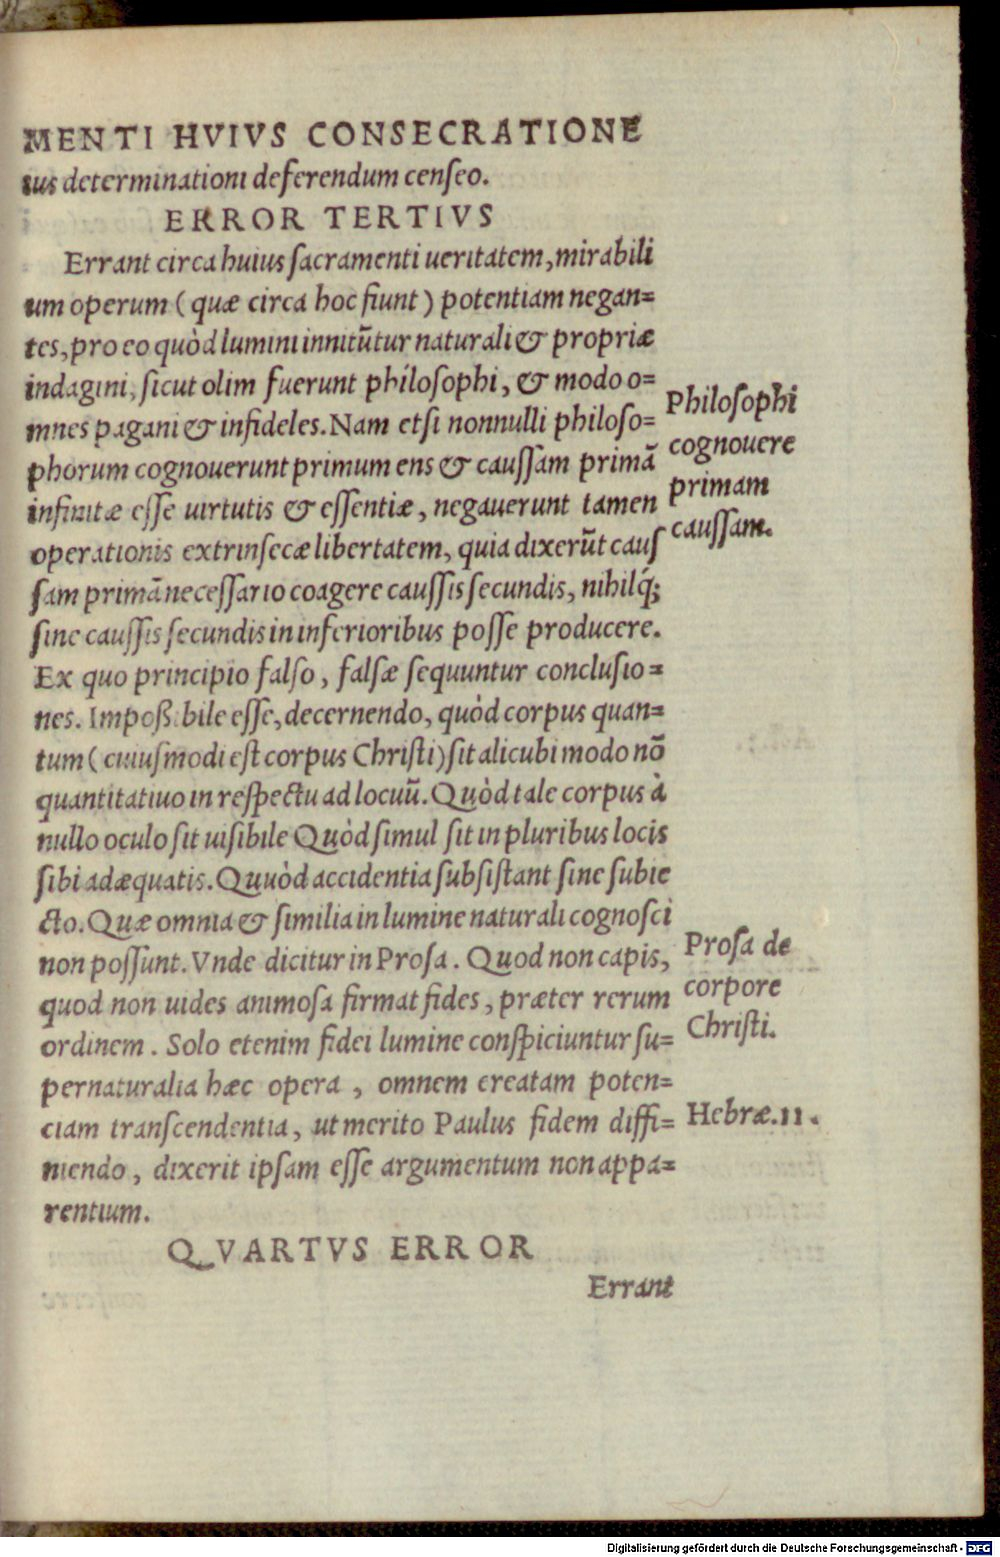 MENTI HVIVS CONSECRATIONE
ius determinationi deferendum censeo.
ERROR TERTIVS
Errant circa huius sacramenti ueritatem, mirabili
um operum ( quæ circa hoc fiunt ) potentiam negan=
tes, pro eo quòd lumini innitũtur naturali & propriæ
indagini, sicut olim fuerunt philosophi, & modo o=
mnes pagani & infideles. Nam etsi nonnulli philoso=
phorum cognouerunt primum ens & caussam primã
infinitæ esse uirtutis & essentiæ, negauerunt tamen
operationis extrinsecæ libertatem, quia dixerũt caus
sam primã necessario coagere caussis secundis, nihilq́;
sine caussis secundis in inferioribus posse producere.
Ex quo principio falso, falsæ sequuntur conclusio=
nes. Imposßibile esse, decernendo, quòd corpus quan=
tum ( cuiusmodi est corpus Christi ) sit alicubi modo nõ
quantitatiuo in respectu ad locuũ. Quòd tale corpus à
nullo oculo sit uisibile Quòd simul sit in pluribus locis
sibi adæquatis. Quuòd accidentia subsistant sine subie
cto. Quæ omnia & similia in lumine naturali cognosci
non possunt. Vnde dicitur in Prosa. Quod non capis,
quod non uides animosa firmat fides, præter rerum
ordinem. Solo etenim fidei lumine conspiciuntur su=
pernaturalia hæc opera, omnem creatam poten=
ciam transcendentia, ut merito Paulus fidem diffi=
niendo, dixerit ipsam esse argumentum non appa=
rentium.
QVARTVS ERROR
Errant
Philosophi
cognouere
primam
caussam.
Prosa de
corpore
Christi.
Hebræ. 11.
Digitalisierung gefördert durch die Deutsche Forschungsgemeinschaft - DFG